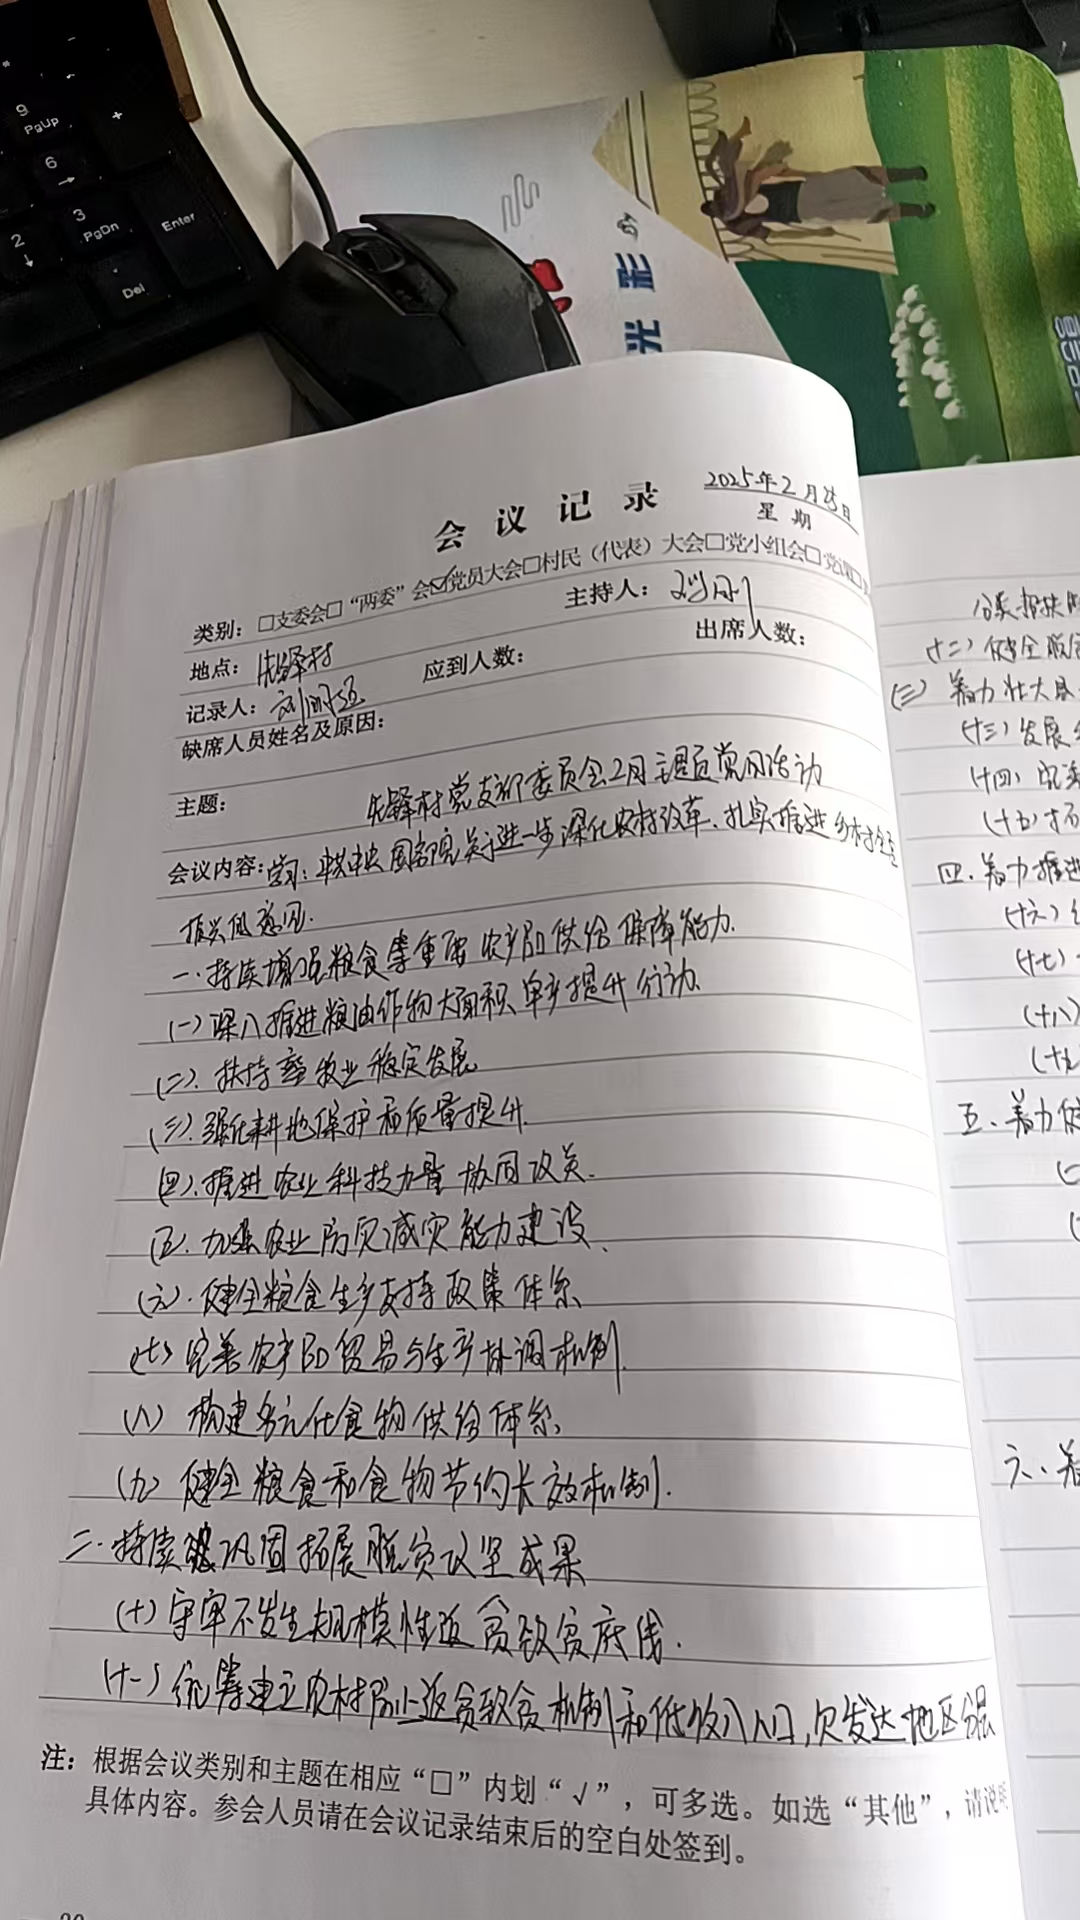 9
PgUp
+
6
3
PgDn
2
Enter
Del
光彩
会议记录
2025年2月25日
星期
类别：□支委会□“两委”会☑党员大会□村民（代表）大会□党小组会□党课□
地点：
主持人：
记录人：
应到人数：
出席人数：
缺席人员姓名及原因：
主题：
村党支部委员会2月主题党日活动
会议内容：学习：中共中央国务院关于进一步深化农村改革、扎实推进乡村全面
振兴的意见.
一.持续增强粮食等重要农产品供给保障能力.
(一)深入推进粮油作物大面积单产提升行动.
(二).扶持畜牧业稳定发展
(三).强化耕地保护和质量提升.
(四).推进农业科技力量协同攻关.
(五.加强农业防灾减灾能力建设、
(六).健全粮食生产支持政策体系
(七)完善农产品贸易与生产协调机制.
(八)构建多元化食物供给体系.
(九)健全粮食和食物节约长效机制.
二.持续巩固拓展脱贫攻坚成果
(十)守牢不发生规模性返贫致贫底线.
(十一)统筹建立农村防止返贫致贫机制和低收入人口,欠发达地区分层
注：根据会议类别和主题在相应“□”内划“√”，可多选。如选“其他”，请说明
具体内容。参会人员请在会议记录结束后的空白处签到。
分类帮扶
(十二)健全脱
(三)着力壮大县
(十三)发展
(十四)完善
(十五)
四.着力推进
(十六)
(十七)
(十八)
(十九
五、着力健
六、着